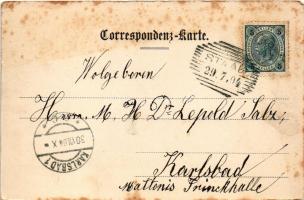 Correspondenz-Karte.
Wolgeboren
29.7.04
Herrn. M. H. Dr Lepold Salz,
KARLSBAD 1
30.VII.04
Karlsbad
Mattonis Trinckhalle